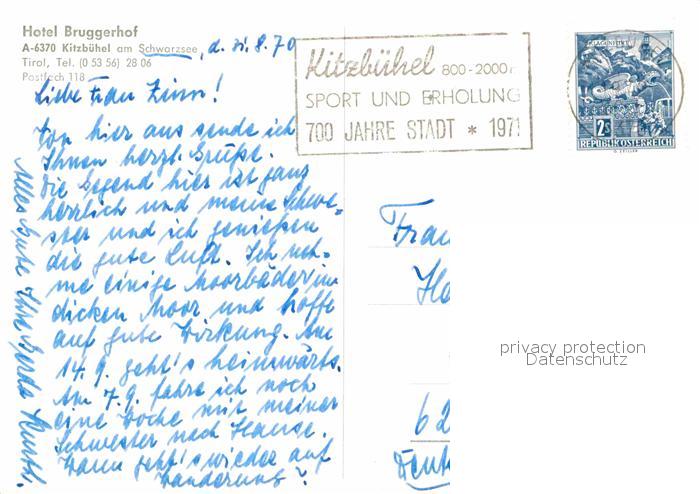 Hotel Bruggerhof
A-6370 Kitzbühel am Schwarzsee, d. 31.8.70
Tirol, Tel. (0 53 56) 28 06
Postfach 118
Liebe Frau Zinn!
Von hier aus sende ich
Ihnen herzl. Grüße.
Die Gegend hier ist ganz
herrlich und meine Schwe-
ster und ich genießen
die gute Luft. Ich neh-
me einige Moorbäder im
dicken Moor und hoffe
auf gute Wirkung. Am
14.9. geht's heimwärts.
Am 7.9. fahre ich noch
eine Woche mit meiner
Schwester nach Hause.
Wann geht's wieder auf
Wanderung?
Alles Gute Ihre Gerda
Kitzbühel 800-2000
SPORT UND ERHOLUNG
700 JAHRE STADT * 1971
KLAGENFURT
2S
REPUBLIK ÖSTERREICH
Frau
62
privacy protection
Datenschutz